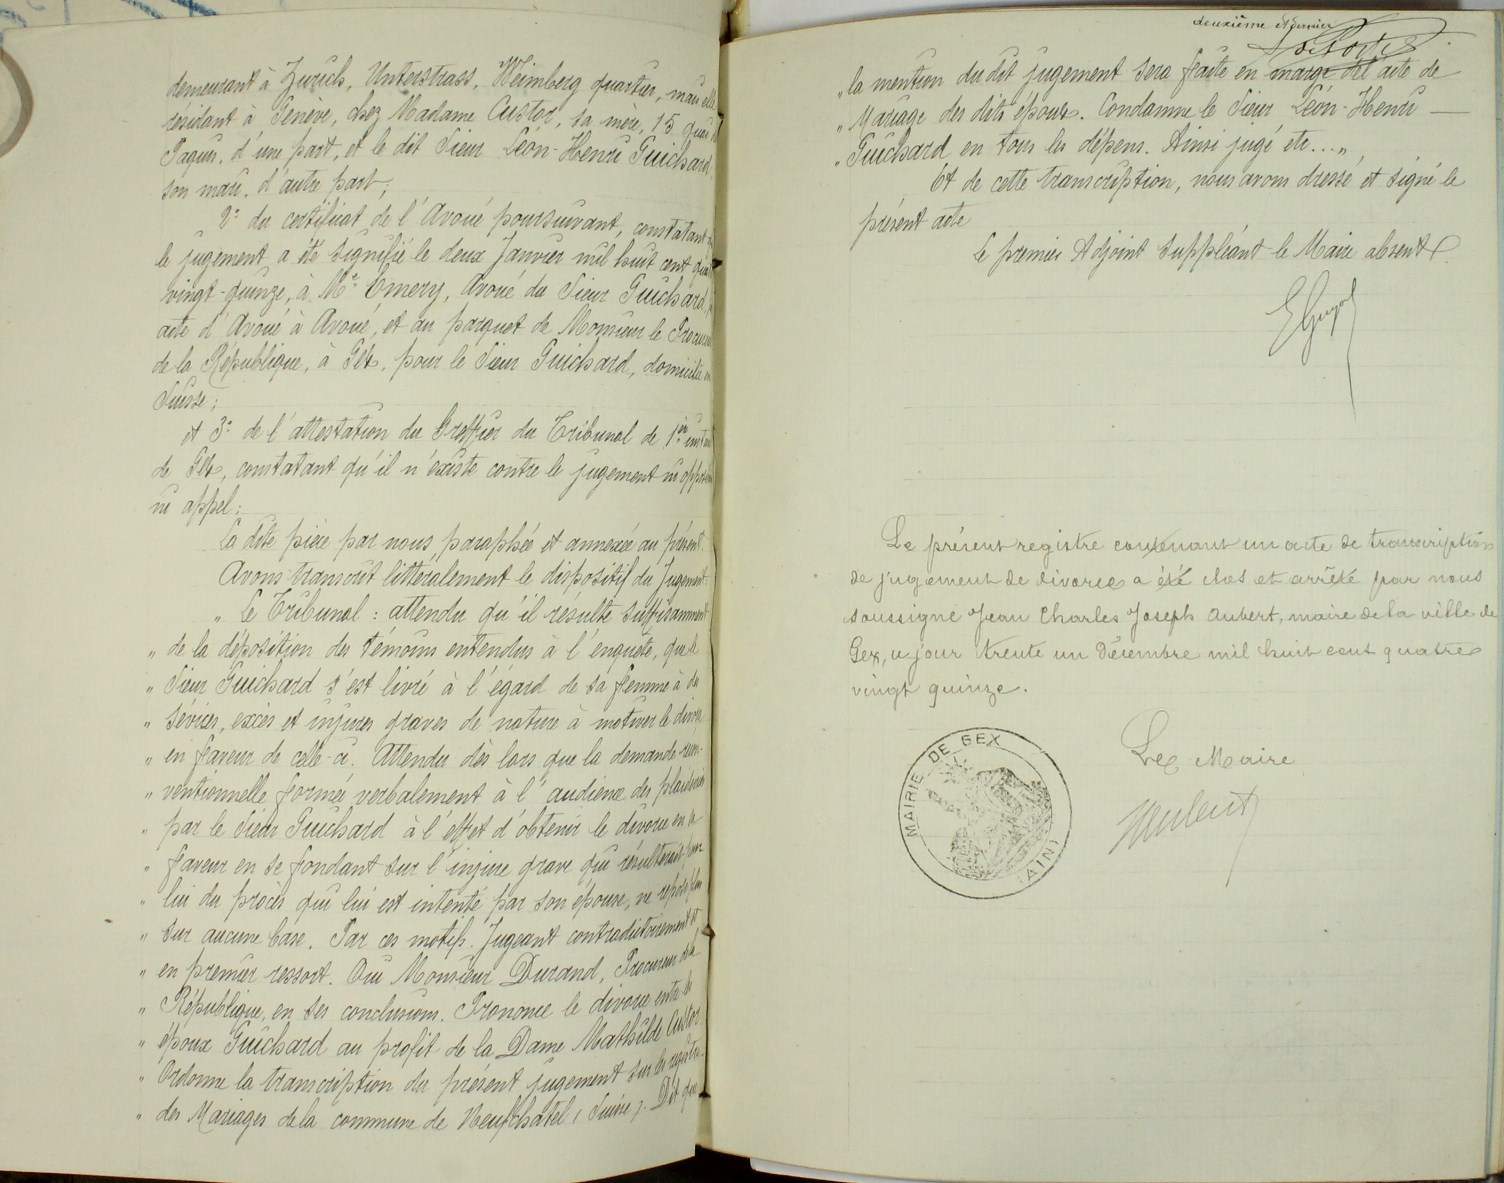 demeurant à Zurich, Unterstrass, Weinberg quartier, mais elle
résidant à Genève, chez Madame Custor, sa mère, 15 quai
Paquis, d'une part, et le dit Sieur Léon-Henri Guichard
son mari, d'autre part;
2° du certificat de l'Avoué poursuivant, constatant
le jugement a été signifié le deux Janvier mil huit cent
vingt-quinze, à Me Emery, Avoué du Sieur Guichard,
acte d'Avoué à Avoué, et au parquet de Monsieur le
de la République, à Gex, pour le Sieur Guichard, domicilié en
Suisse;
et 3° de l'attestation du Greffier du Tribunal de 1ère
de Gex, constatant qu'il n'existe contre le jugement ni
ni appel;
La dite pièce par nous paraphée et annexée au présent.
Avons transcrit littéralement le dispositif du Jugement
" Le Tribunal : attendu qu'il résulte suffisamment
" de la déposition des témoins entendus à l'enquête, que le
" Sieur Guichard s'est livré à l'égard de sa femme à des
" sévices, excès et injures graves de nature à motiver le divorce
" en faveur de celle-ci. Attendu dès lors que la demande
" ventionnelle formée verbalement à l'audience des plaidoiries
" par le Sieur Guichard à l'effet d'obtenir le divorce en sa
" faveur en se fondant sur l'injure grave qui résulterait pour
" lui du procès qui lui est intenté par son épouse, ne repose
" sur aucune base. Par ces motifs. Jugeant contradictoirement et
" en premier ressort. Ouï Monsieur Durand, Procureur de la
" République, en ses conclusions. Prononce le divorce entre les
" époux Guichard au profit de la Dame Mathilde Custor
" Ordonne la transcription du présent jugement sur les registres
" des Mariages de la commune de Neufchatel (Suisse). Dit que
deuxième et dernier
" la mention du dit jugement sera faite en marge de l'acte de
" Mariage des dits époux. Condamne le Sieur Léon-Henri —
" Guichard en tous les dépens. Ainsi jugé etc..."
Et de cette transcription, nous avons dressé et signé le
présent acte
Le premier Adjoint suppléant le Maire absent
Le présent registre contenant un acte de transcription
de jugement de divorce a été clos et arrêté par nous
soussigné Jean Charles Joseph Aubert, maire de la ville de
Gex, ce jour trente un Décembre mil huit cent quatre
vingt quinze.
Le Maire
MAIRIE DE GEX
(AIN)